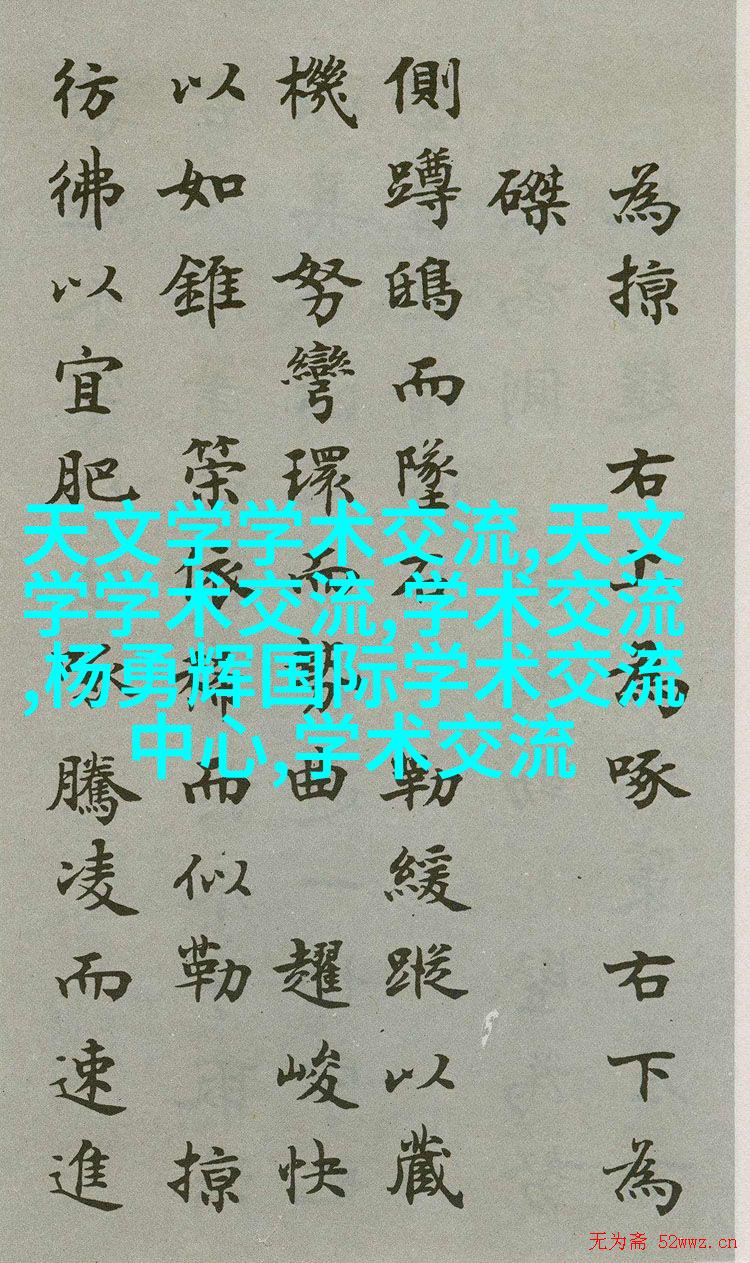 為掠 右上為啄 右下為
磔
側蹲鴟而墜石 勒緩蹤以藏
機 努彎環而勢曲 趯峻快
以如錐 策依稀而似勒 掠
彷彿以宜肥 啄騰凌而速進
天文学学术交流,天文
学学术交流,学术交流
,杨勇辉国际学术交流
中心,学术交流
无为斋 52wwz.cn